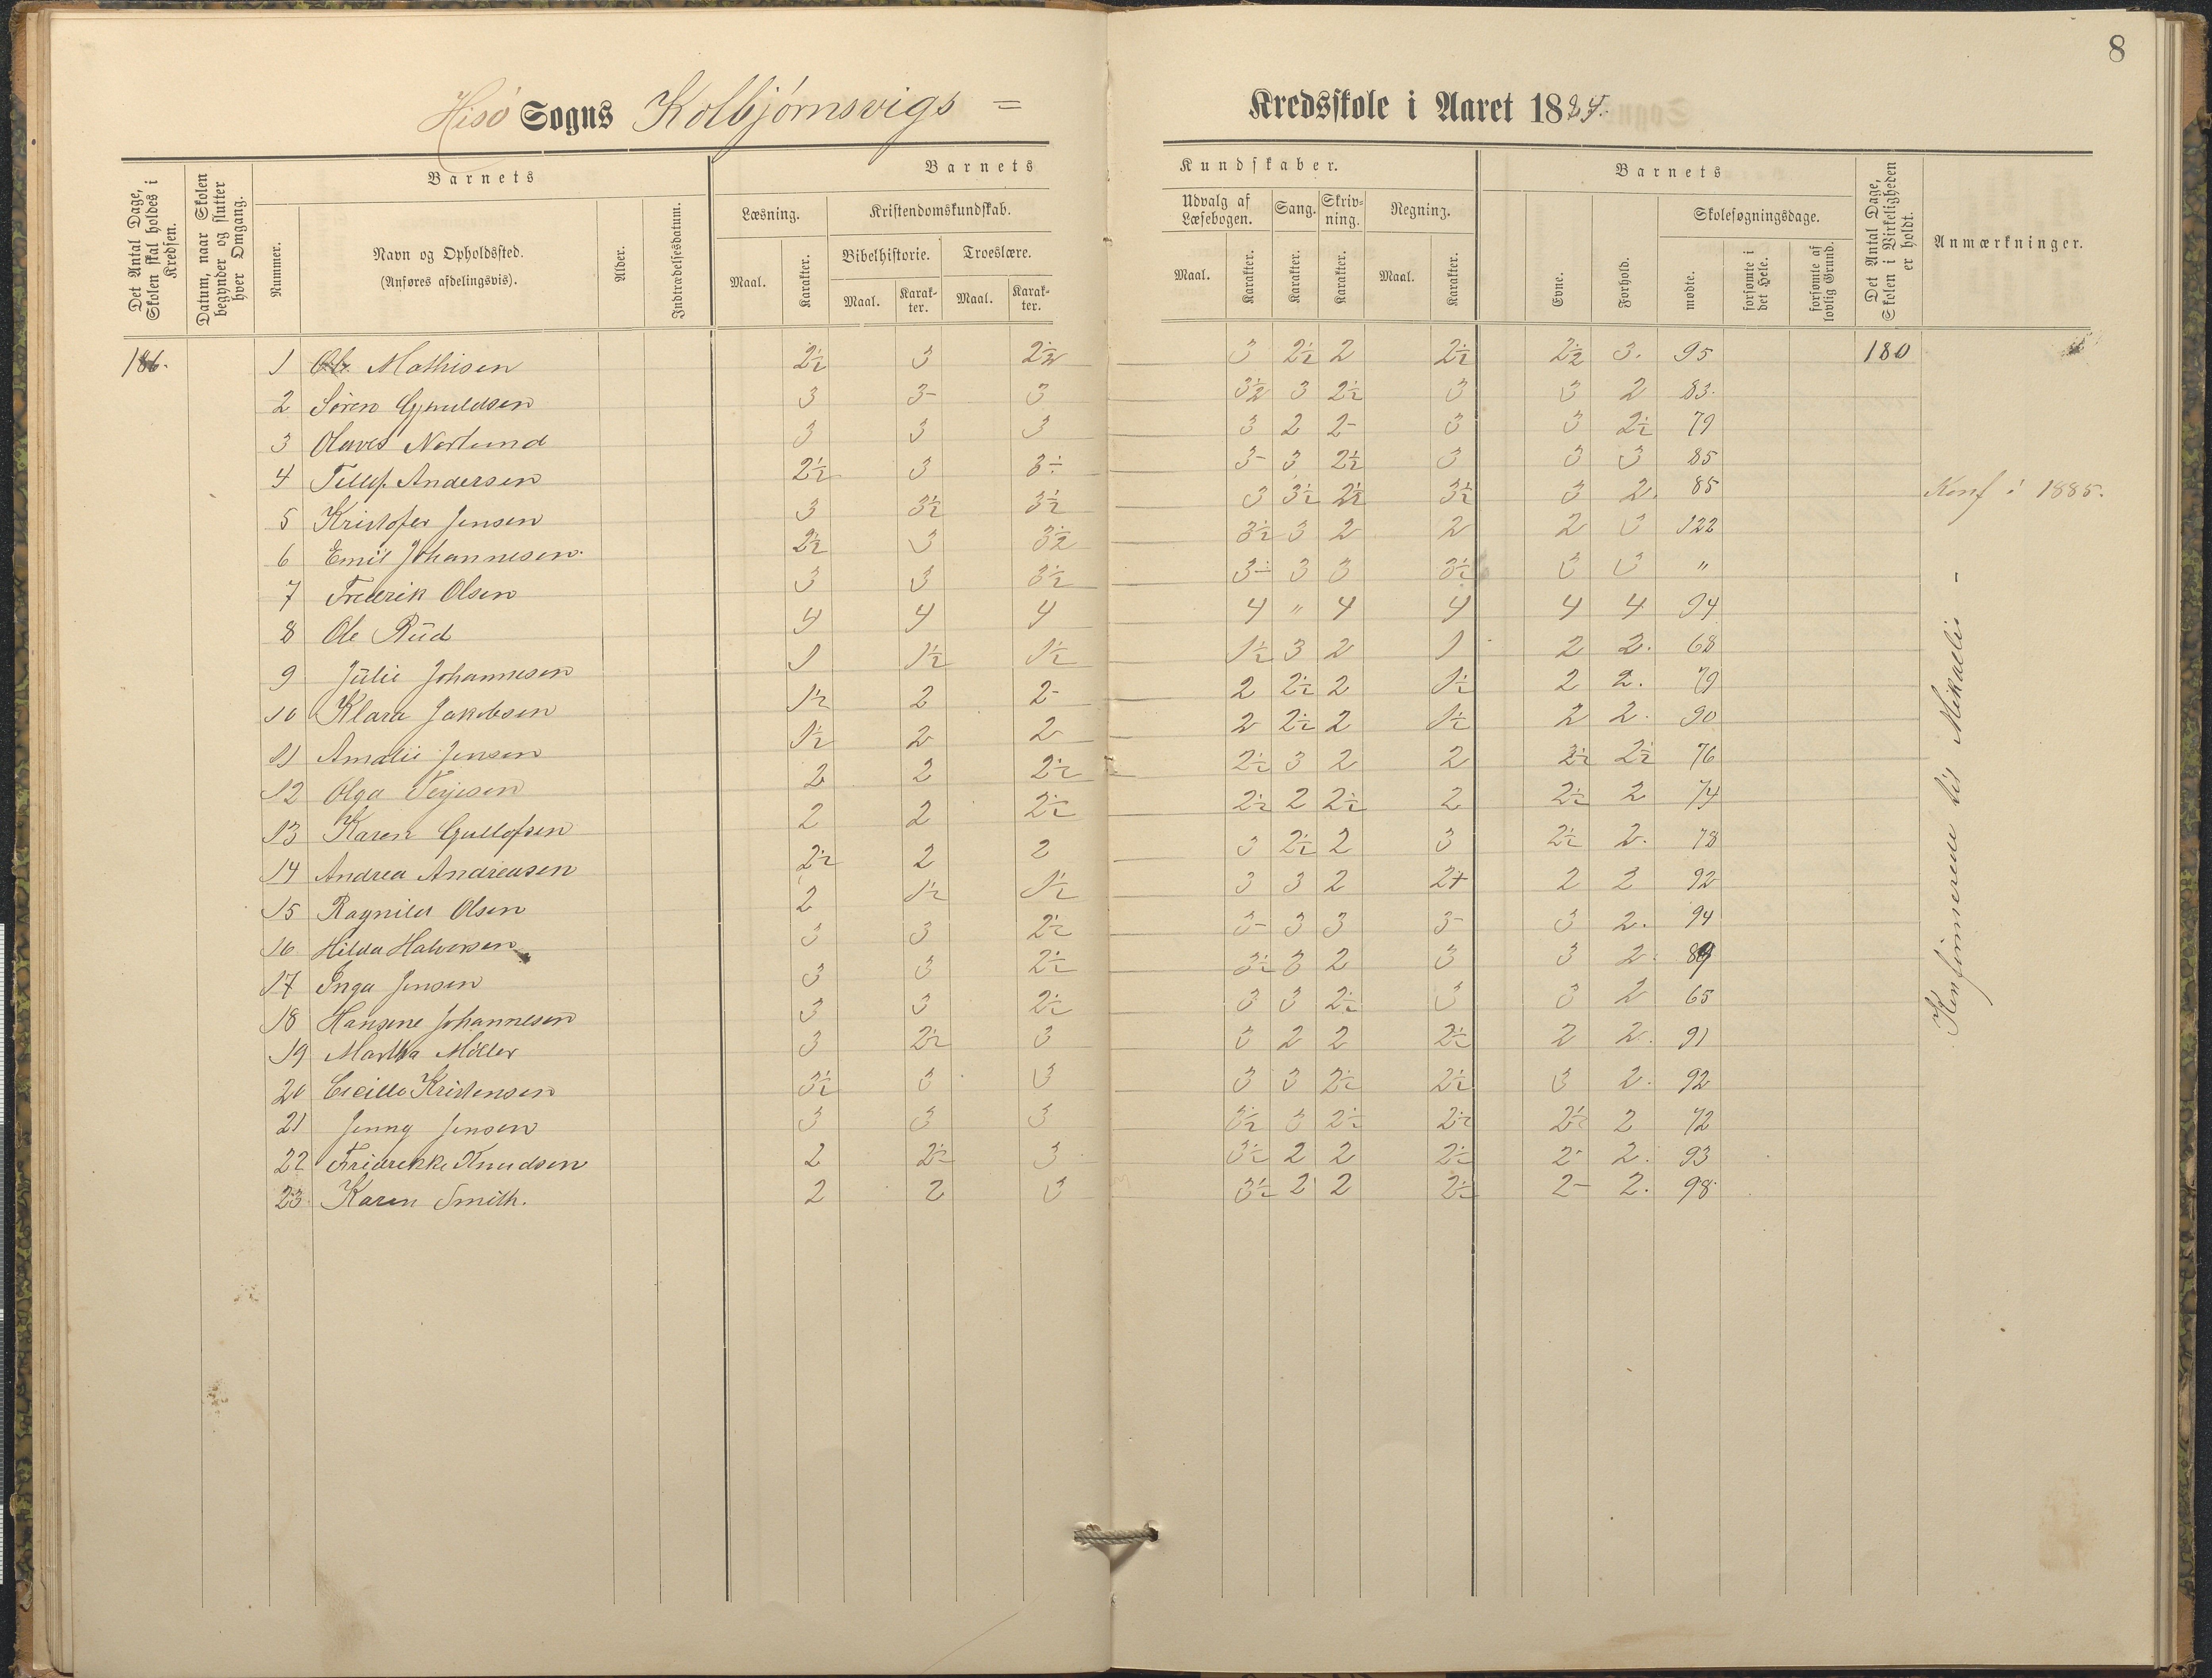 8
Hisö Sogns Kolbjörnsvigs = Kredsskole i Aaret 1884.
Det Antal Dage, Skolen skal holdes i Kredsen.
Datum, naar Skolen begynder og slutter hver Omgang.
Barnets
Nummer.
Navn og Opholdssted.
(Anføres afdelingsvis).
Alder.
Indtrædelsesdatum.
Barnets Kundskaber.
Læsning.
Kristendomskundskab.
Bibelhistorie.
Troeslære.
Maal.
Karakter.
Maal.
Karakter.
Maal.
Karakter.
Udvalg af Læsebogen.
Sang.
Skrivning.
Regning.
Maal.
Karakter.
Karakter.
Karakter.
Maal.
Karakter.
Barnets
Evne.
Forhold.
Skolesøgningsdage.
mødte.
forsømte i det Hele.
forsømte af lovlig Grund.
Det Antal Dage, Skolen i Virkeligheden er holdt.
Anmærkninger.
186. 1 Ole Mathisen 2½ 3 2½ 3 2½ 2 2½ 2½ 3. 95 180
2 Sören Gjeruldsen 3 3- 3 3½ 3 2½ 3 3 2 83.
3 Olaves Norlund 3 3 3 3 2 2- 3 3 2½ 79
4 Tellef Andersen 2½ 3 3÷ 3- 3 2½ 3 3 3 85
5 Kristofer Jensen 3 3½ 3½ 3 3½ 2½ 3½ 3 2. 85 Konf i 1885.
6 Emil Johannesen. 2½ 3 3½ 3½ 3 2 2 2 3 122
7 Fredrik Olsen 3 3 3½ 3÷ 3 3 3½ 3 3 "
8 Ole Rüd 4 4 4 4 " 4 4 4 4 94
9 Jülie Johannesen 1 1½ 1½ 1½ 3 2 1 2 2. 68
10 Klara Jakobsen 1½ 2 2- 2 2½ 2 1½ 2 2. 79
11 Amalie Jensen 1½ 2 2 2 2½ 2 1½ 2 2. 90
12 Olga Terjesen 2 2 2½ 2½ 3 2 2 2½ 2½ 76
13 Karen Gullofsen 2 2 2½ 2½ 2 2½ 2 2½ 2 74
14 Andrea Andreasen 2½ 2 2 3 2½ 2 3 2½ 2. 78
15 Ragnild Olsen 2 1½ 1½ 3 3 2 2+ 2 2 92
16 Hilda Halvorsen 3 3 2½ 3- 3 3 3- 3 2. 94
17 Inga Jensen 3 3 2½ 3½ 3 2 3 3 2. 89
18 Hansine Johannesen 3 3 2½ 3 3 2½ 3 3 2 65
19 Martha Möller 3 2½ 3 3 2 2 2½ 2 2. 91
20 Cecille Kristensen 3½ 3 3 3 3 2½ 2½ 3 2. 92
21 Jenny Jensen 3 3 3 3½ 3 2½ 2½ 2½ 2 72
22 Fridrekke Knudsen 2 2½ 3 3½ 2 2 2½ 2- 2. 93
23 Karen Smith. 2 2 3 3½ 2 2 2½ 2- 2. 98.
Konfirmerede til Mikaelis -